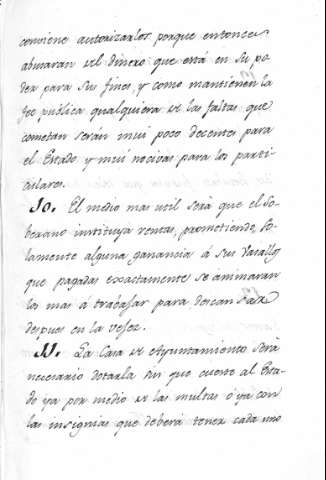 conviene autorizarlos porque entonces
abusaran del dinero que está en su po-
der para sus fines, y como mantienen la
fee publica qualquiera de las faltas que
cometan serán mui poco decentes para
el Estado y mui nocivas para los parti-
culares.
10. El medio mas util será que el So-
berano instituya rentas, prometiendo so-
lamente alguna ganancia á sus Vasallos
que pagadas exactamente se animaran
los mas á trabajar para descansar
despues en la vejez.
11. La Casa de Ayuntamiento será
necesario dotarla sin que cueste al Esta-
do ya por medio de las multas ó ya con
las insignias que deberá tener cada uno